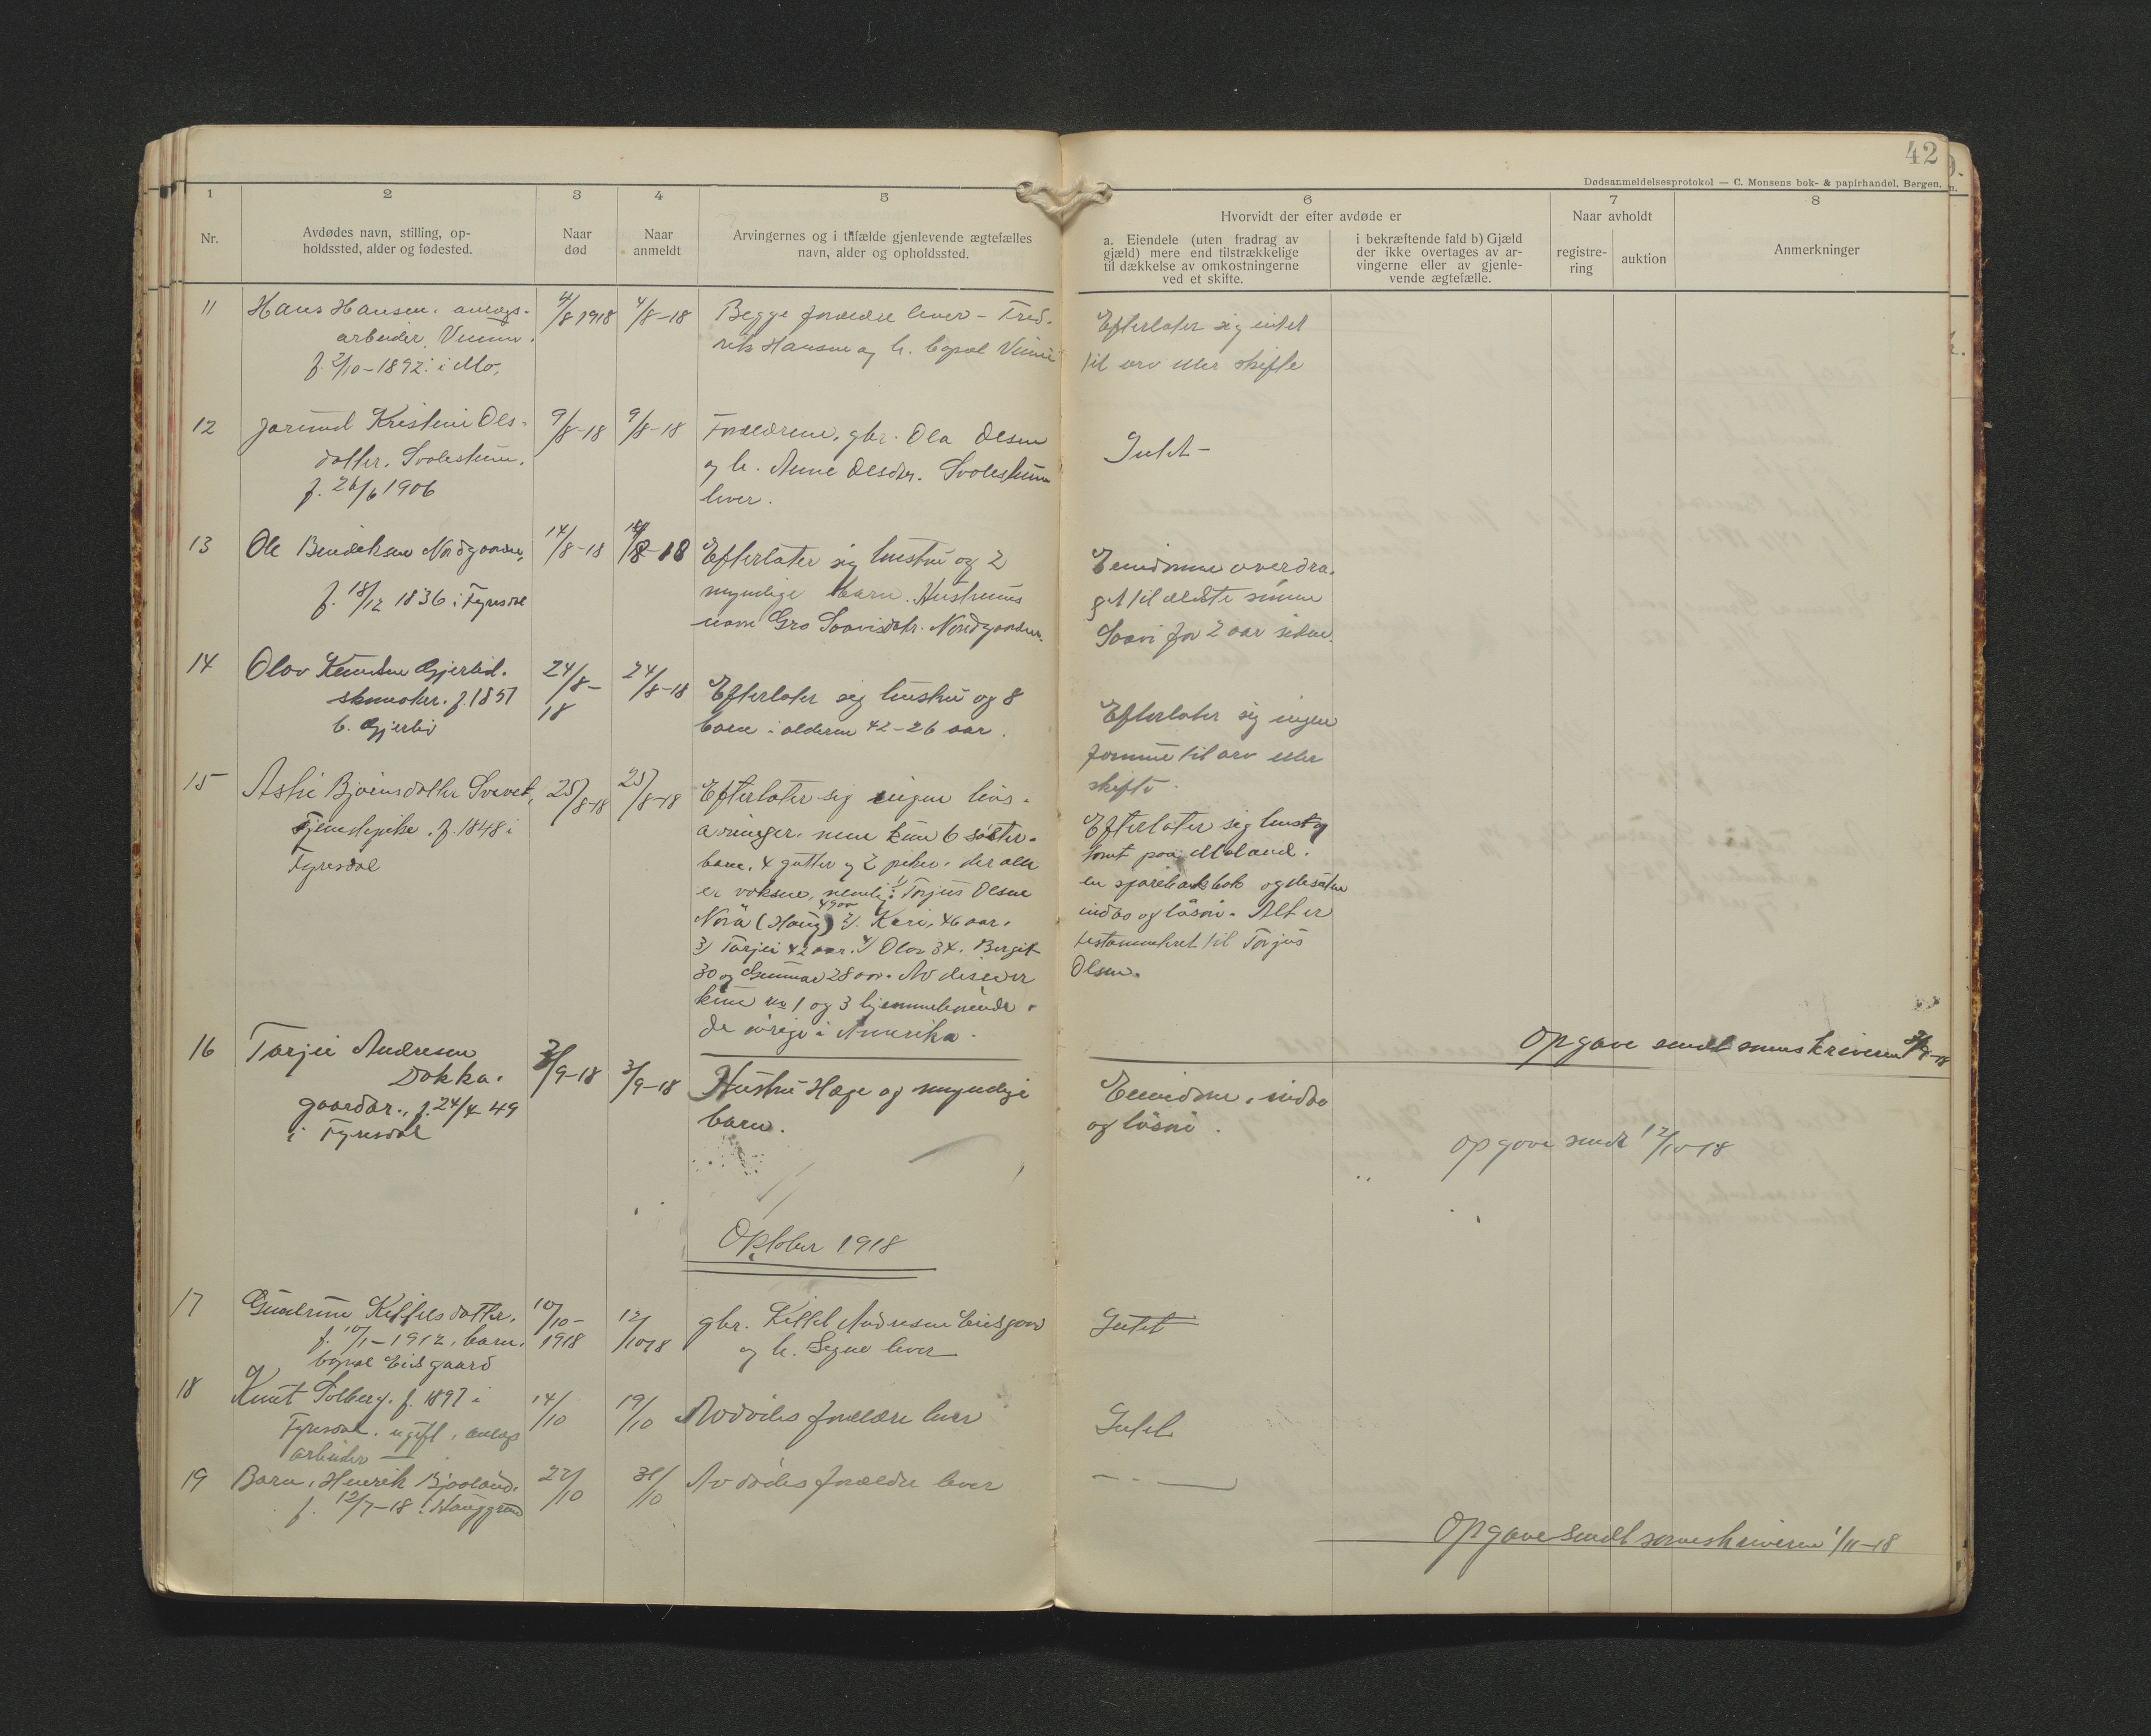 42
Dødsanmeldelsesprotokol — C. Monsens bok- & papirhandel. Bergen.
1
2
3
4
5
6
7
8
Nr.
Avdødes navn, stilling, op-
holdssted, alder og fødested.
Naar
død
Naar
anmeldt
Arvingernes og i tilfælde gjenlevende ægtefælles
navn, alder og opholdssted.
Hvorvidt der efter avdøde er
a. Eiendele (uten fradrag av
gjæld) mere end tilstrækkelige
til dækkelse av omkostningerne
ved et skifte.
i bekræftende fald b) Gjæld
der ikke overtages av ar-
vingerne eller av gjenle-
vende ægtefælle.
Naar avholdt
registre-
ring
auktion
Anmerkninger
11
Hans Hansen. anlægs-
arbeider.
f. 2/10-1892 i Mo.
4/8 1918
7/8-18
Begge forældre lever - Fred-
rik Hansen og h. bopæl
Efterlater sig intet
til arv eller skifte
12
Jorund Kristine Ols-
datter.
f. 26/6 1906
9/8-18
9/8-18
Forældrene, gbr. Ola Olsen
og h. Anne Olsdtr.
lever.
Intet -
13
Ole Bendiksen Nordgaarden,
f. 18/12 1836 i Fyresdal
14/8-18
/8-18
Efterlater sig hustru og 2
myndige barn. Hustruens
navn Gro Saavisdatr. Nordgaarden.
Eiendommen overdra-
get til ældste sønnen
Saavi for 2 aar siden.
14
Olov Knudsen Gjerlid.
skomaker. f. 1851
b. Gjerlid
24/8-
18
24/8-18
Efterlater sig hustru og 8
barn i alderen 42-26 aar.
Efterlater sig ingen
formue til arv eller
skifte.
15
Aslei Bjørnsdatter
Tjenestepike. f. 1848 i
Fyresdal
25/8-18
25/8-18
Efterlater sig ingen livs-
arvinger. men kun 6 søster-
barn, 4 gutter og 2 piker, der alle
er voksne, nemlig: 1/ Torjus Olsen
49 aar
Norå (Haug) 2/. Kari, 46 aar.
3/ Tarjei 42 aar. 4/ Olov 34. Bergit
30 og Gunnar 28 aar. Av disse er
kun no 1 og 3 hjemmehørende.
de øvrige i Amerika.
Efterlater sig hus og
tomt paa Moland.
en sparebankbok og desuten
indbo og løsøre. Alt er
testamentert til Torjus
Olsen.
Opgave sendt sorenskriveren /9-18
16
Tarjei Andresen
Dokka.
gaardbr., f. 24/4 49
i Fyresdal
3/9-18
3/9-18
Hustru Hæge og myndige
barn.
Eiendom, indbo
og løsøre.
opgave sendt 12/10-18
Oktober 1918
17
Gudrun Kittilsdatter.
f. 10/1-1912, barn.
bopæl Eidsgaard
10/10-
1918
12/10 18
gbr. Kittil Andresen Eidsgaard
og h. Signe lever
Intet
18
Knut Solberg. f. 1897 i
Fyresdal. ugift, anlægs
arbeider —
14/10
19/10
Avdødes forældre lever
Intet
19
Barn, Henrik Bjaaland.
f. 12/7-18 i Hauggrend
22/10
31/10
Avdødes forældre lever
— " —
Opgave sendt sorenskriveren 1/11-18